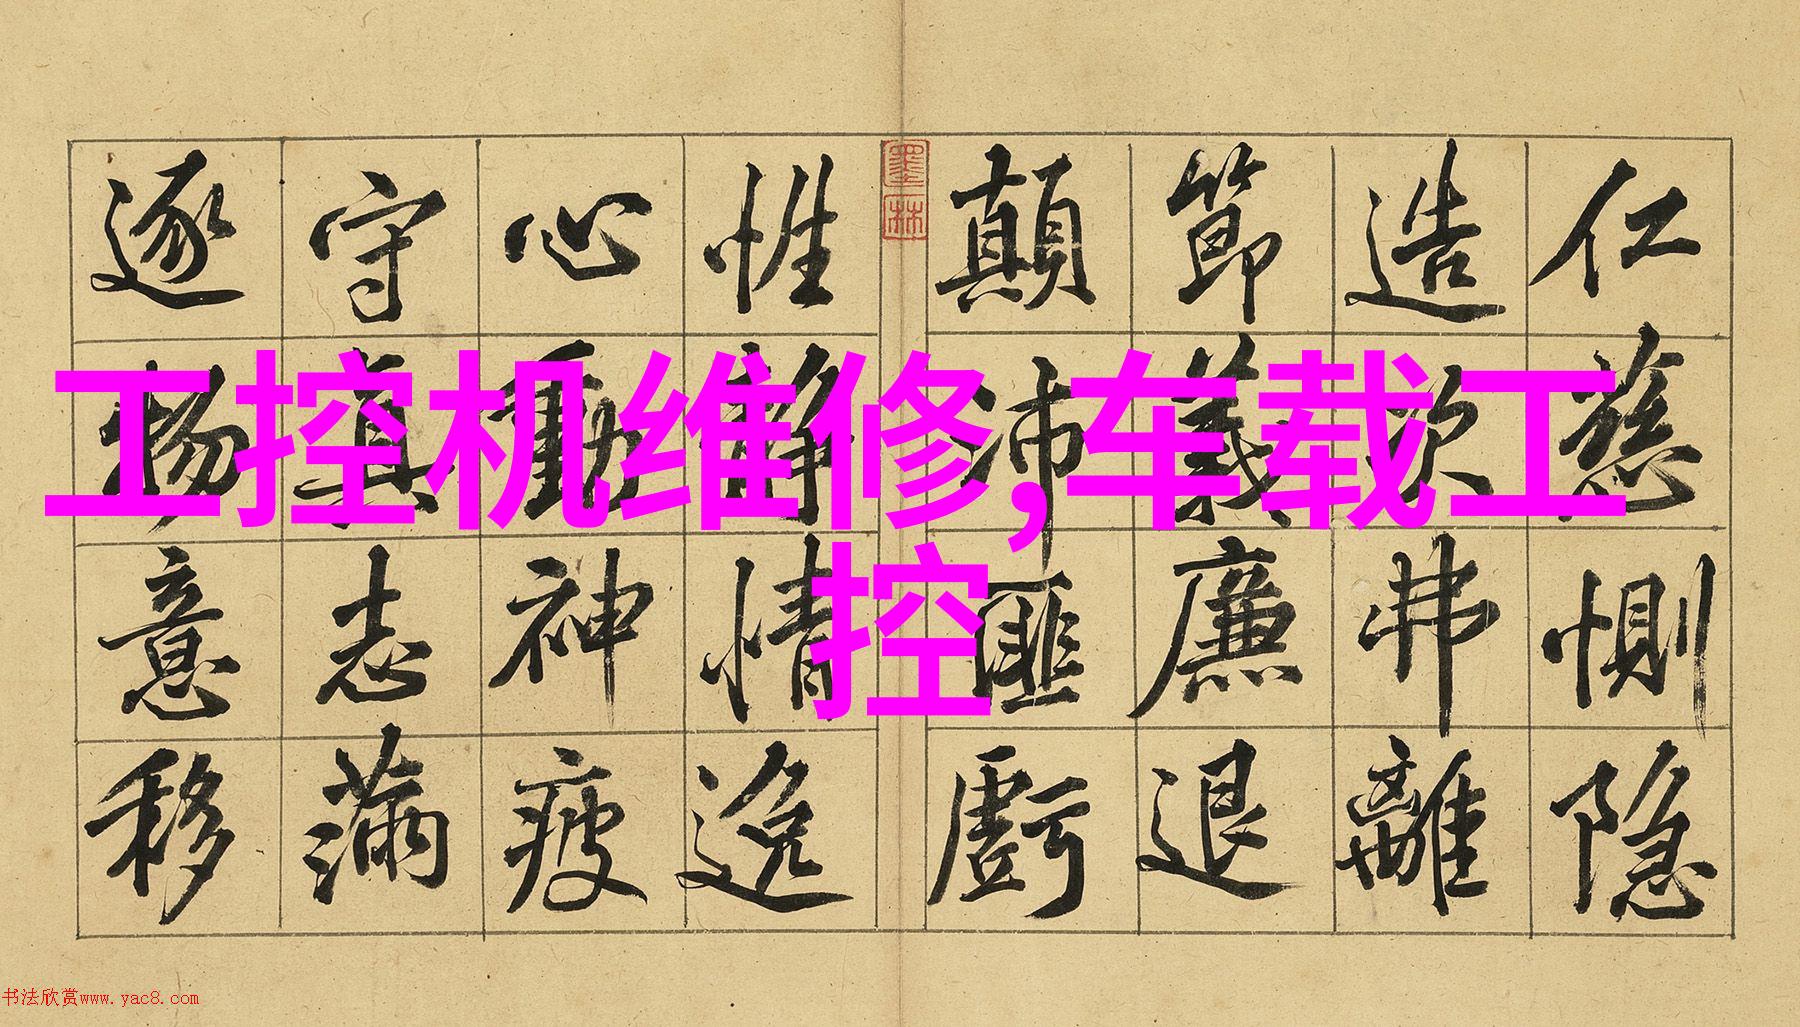 工控机维修,车载工
控
仁慈惻隐
造次弗離
節義廉退
顛沛匪虧
墨林
性静情逸
心動神疲
守真志滿
逐物意移
书法欣赏www.yac8.com